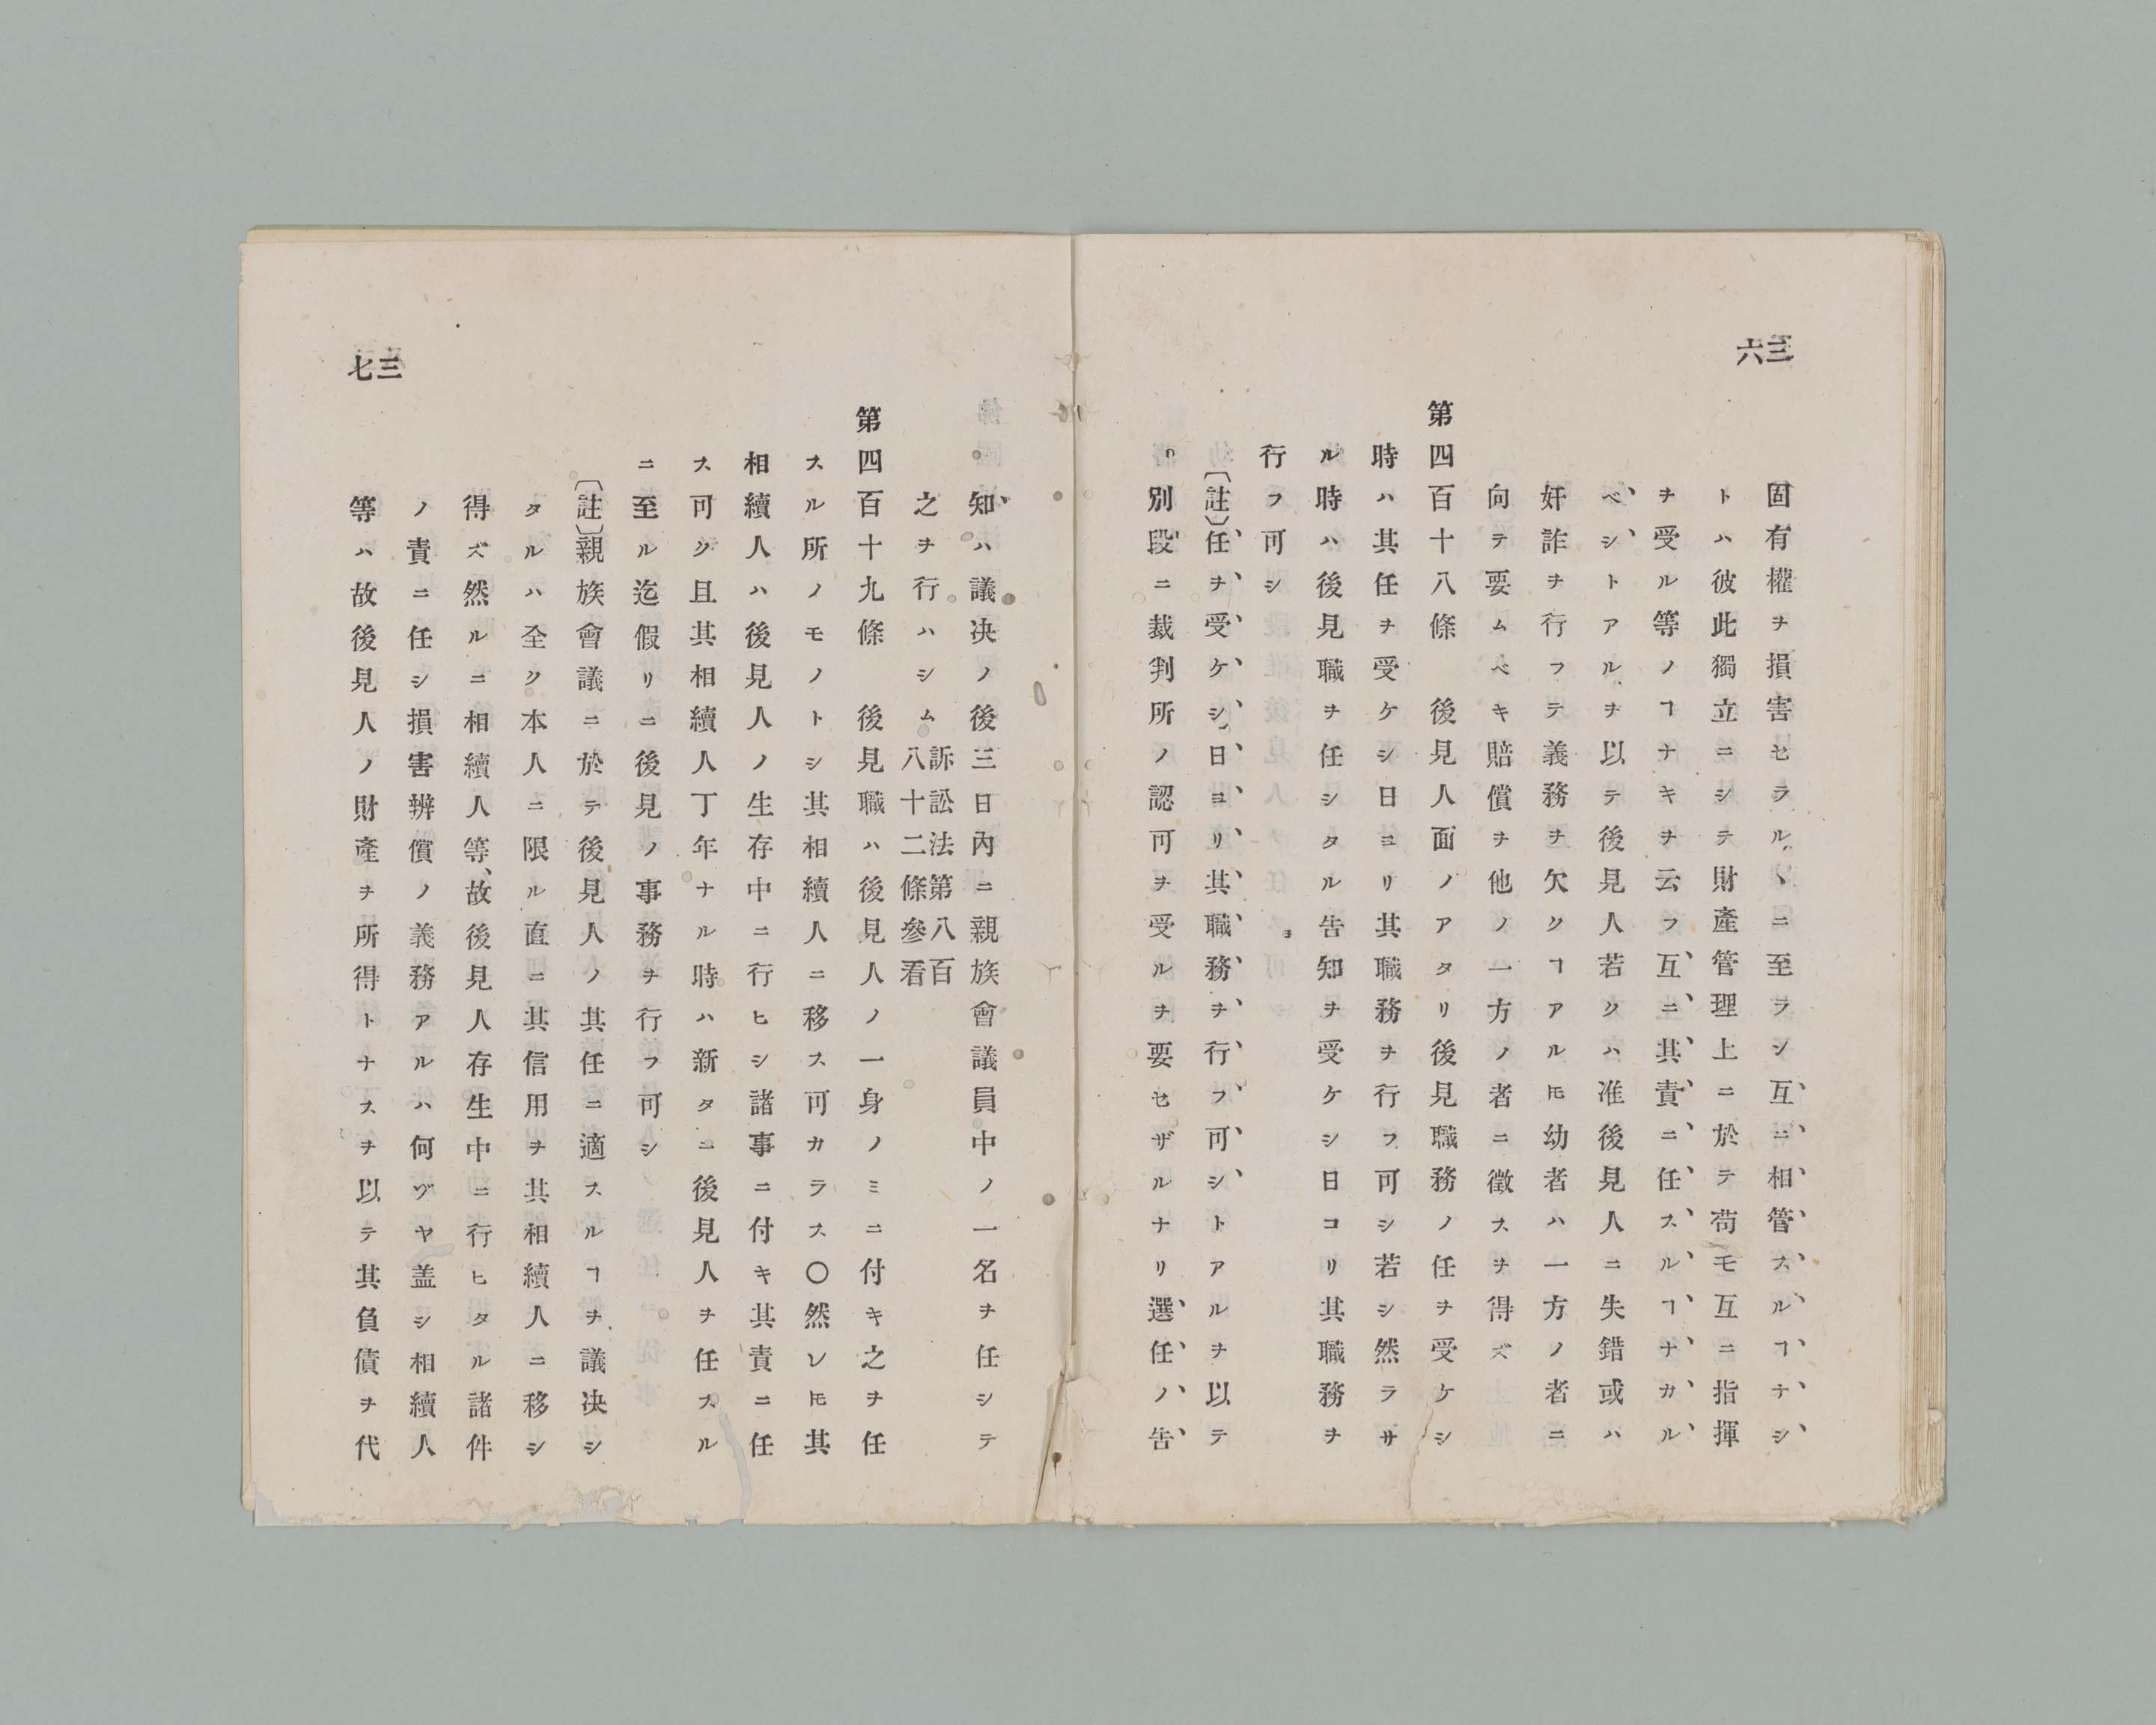 三六
固有權ヲ損害セラルヽニ至ラン互ニ相管スルヿナシ
トハ彼此獨立ニシテ財產管理上ニ於テ苟モ互ニ指揮
ヲ受ル等ノヿナキヲ云フ互ニ其責ニ任スルヿナカル
ベシトアルヲ以テ後見人若クハ准後見人ニ失錯或ハ
奸詐ヲ行フテ義務ヲ欠クヿアルモ幼者ハ一方ノ者ニ
向テ要ムベキ賠償ヲ他ノ一方ノ者ニ徵スヲ得ズ
第四百十八條　後見人面ノアタリ後見職務ノ任ヲ受ケシ
時ハ其任ヲ受ケシ日ヨリ其職務ヲ行フ可シ若シ然ラサ
ル時ハ後見職ヲ任シタル告知ヲ受ケシ日コリ其職務ヲ
行フ可シ
〔註〕任ヲ受ケシ日ヨリ其職務ヲ行フ可シトアルヲ以テ
別段ニ裁判所ノ認可ヲ受ルヲ要セザルナリ選任ノ告
三七
知ハ議决ノ後三日內ニ親族會議員中ノ一名ヲ任シテ
之ヲ行ハシム訴訟法第八百八十二條參看
第四百十九條　後見職ハ後見人ノ一身ノミニ付キ之ヲ任
スル所ノモノトシ其相續人ニ移ス可カラス〇然レ𪜈其
相續人ハ後見人ノ生存中ニ行ヒシ諸事ニ付キ其責ニ任
ス可ク且其相續人丁年ナル時ハ新タニ後見人ヲ任スル
ニ至ル迄假リニ後見ノ事務ヲ行フ可シ
〔註〕親族會議ニ於テ後見人ノ其任ニ適スルヿヲ議决シ
タルハ全ク本人ニ限ル直ニ其信用ヲ其相續人ニ移シ
得ズ然ルニ相續人等、故後見人存生中ニ行ヒタル諸件
ノ責ニ任シ損害辨償ノ義務アルハ何ヅヤ盖シ相續人
等ハ故後見人ノ財產ヲ所得トナスヲ以テ其負債ヲ代